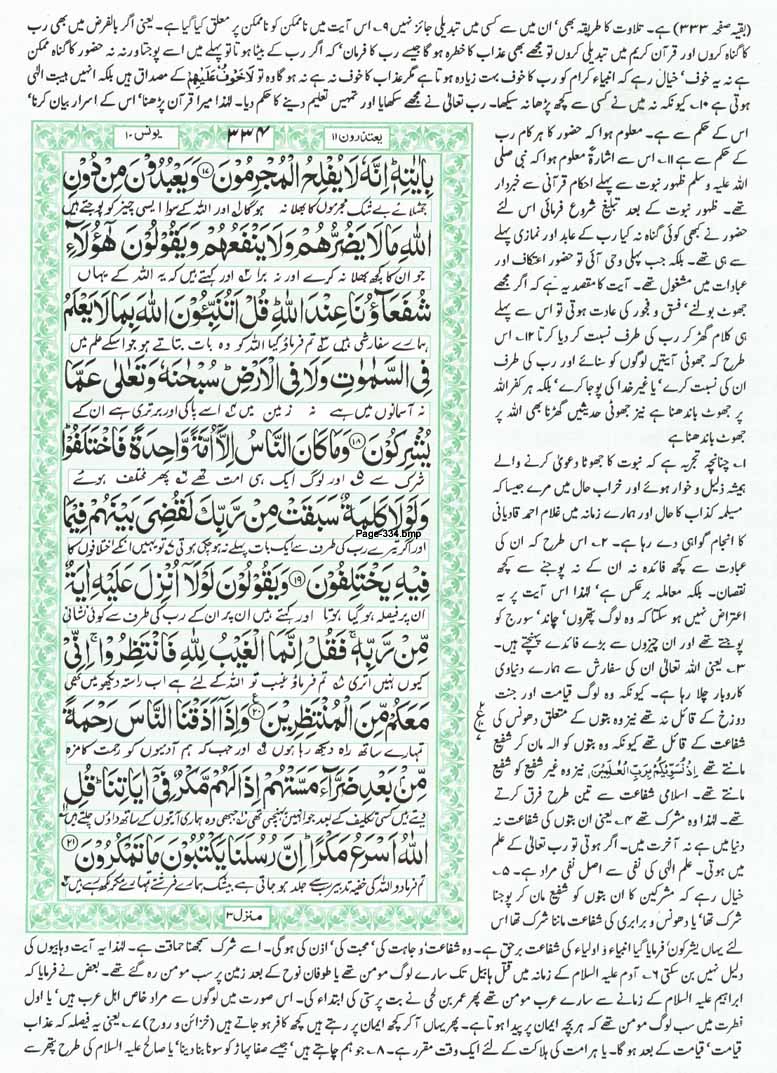 (بقیہ صفحہ ۳۳۳) ہے۔ تلاوت کا طریقہ بھی' ان میں سے کسی میں تبدیلی جائز نہیں ۹۔ اس آیت میں ناممکن کو ناممکن پر معلق کیا گیا ہے۔ یعنی اگر بالفرض میں بھی رب
کا گناہ کروں اور قرآن کریم میں تبدیلی کروں تو مجھے بھی عذاب کا خطرہ ہو گا جیسے رب کا فرمان' کہ اگر رب کے بیٹا ہوتا تو پہلے میں اسے پوجتا ورنہ نہ حضور کا گناہ ممکن
ہے نہ یہ خوف' خیال رہے کہ انبیاء کرام کو رب کا خوف بہت زیادہ ہوتا ہے مگر عذاب کا خوف نہ ہے نہ ہو گا وہ تو لَاخَوْفٌ عَلَيْهِمْ کے مصداق ہیں بلکہ انہیں ہیبت الٰہی
ہوتی ہے ۱۰۔ کیونکہ نہ میں نے کسی سے کچھ پڑھا نہ سیکھا۔ رب تعالیٰ نے مجھے سکھایا اور تمہیں تعلیم دینے کا حکم دیا۔ لہٰذا میرا قرآن پڑھنا' اس کے اسرار بیان کرنا'
اس کے حکم سے ہے۔ معلوم ہوا کہ حضور کا ہر کام رب
کے حکم سے ہے ۱۱۔ اس سے اشارۃً معلوم ہوا کہ نبی صلی
اللہ علیہ وسلم ظہور نبوت سے پہلے احکام قرآنی سے خبردار
تھے۔ ظہور نبوت کے بعد تبلیغ شروع فرمائی اس لئے
حضور نے کبھی کوئی گناہ نہ کیا رب کے عابد اور نمازی پہلے
سے ہی تھے۔ بلکہ جب پہلی وحی آئی تو حضور اعتکاف اور
عبادات میں مشغول تھے۔ آیت کا مقصد یہ ہے کہ اگر مجھے
جھوٹ بولنے' فسق و فجور کی عادت ہوتی تو اس سے پہلے
ہی کلام گھڑ کر رب کی طرف نسبت کر دیا کرتا ۱۲۔ اس
طرح کہ جھوٹی آیتیں لوگوں کو سنائے اور رب کی طرف
ان کی نسبت کرے' یا غیر خدا کی پوجا کرے' بلکہ ہر کفر اللہ
پر جھوٹ باندھنا ہے نیز جھوٹی حدیثیں گھڑنا بھی اللہ پر
جھوٹ باندھنا ہے
۱۔ چنانچہ تجربہ ہے کہ نبوت کا جھوٹا دعویٰ کرنے والے
ہمیشہ ذلیل و خوار ہوئے اور خراب حال میں مرے جیسا کہ
مسیلمہ کذاب کا حال اور ہمارے زمانہ میں غلام احمد قادیانی
کا انجام گواہی دے رہا ہے۔ ۲۔ اس طرح کہ ان کی
عبادت سے کچھ فائدہ نہ ان کے نہ پوجنے سے کچھ
نقصان۔ بلکہ معاملہ برعکس ہے' لہٰذا اس آیت پر یہ
اعتراض نہیں ہو سکتا کہ وہ لوگ پتھروں' چاند' سورج کو
پوجتے تھے اور ان چیزوں سے بڑے فائدے پہنچتے ہیں۔
۳۔ یعنی اللہ تعالیٰ ان کی سفارش سے ہمارے دنیاوی
کاروبار چلا رہا ہے۔ کیونکہ وہ لوگ قیامت اور جنت
دوزخ کے قائل نہ تھے نیز وہ بتوں کے متعلق دھونس کی
شفاعت کے قائل تھے کیونکہ وہ بتوں کو الہ مان کر شفیع
مانتے تھے اِذْ نُسَوِّيْكُمْ بِرَبِّ الْعٰلَمِيْنَ نیز وہ غیر شفیع کو شفیع
مانتے تھے۔ اسلامی شفاعت سے تین طرح فرق کرتے
تھے۔ لہٰذا وہ مشرک تھے ۴۔ یعنی ان بتوں کی شفاعت نہ
دنیا میں ہے نہ آخرت میں۔ اگر ہوتی تو رب تعالیٰ کے علم
میں ہوتی۔ علم الٰہی کی نفی سے اصل نفی مراد ہے۔ ۵۔
خیال رہے کہ مشرکین کا ان بتوں کو شفیع مان کر پوجنا
شرک تھا' یا دھونس و برابری کی شفاعت ماننا شرک تھا اس
یعتذرون ۱۱
۳۳۴
یونس ۱۰
بِاٰيٰتِهٖ اِنَّهٗ لَا يُفْلِحُ الْمُجْرِمُوْنَ ۱۷ وَيَعْبُدُوْنَ مِنْ دُوْنِ
جھٹلائے بے شک مجرموں کا بھلا نہ ہوگا اور اللہ کے سوا ایسی چیز کو پوجتے ہیں
اللّٰهِ مَا لَا يَضُرُّهُمْ وَلَا يَنْفَعُهُمْ وَيَقُوْلُوْنَ هٰٓؤُلَآءِ
جو ان کا کچھ بھلا نہ کرے اور نہ برا اور کہتے ہیں کہ یہ اللہ کے یہاں
شُفَعَآؤُنَا عِنْدَ اللّٰهِ قُلْ اَتُنَبِّئُوْنَ اللّٰهَ بِمَا لَا يَعْلَمُ
ہمارے سفارشی ہیں تم فرماؤ کیا اللہ کو وہ بات بتاتے ہو جو اسکے علم میں
فِي السَّمٰوٰتِ وَلَا فِي الْاَرْضِ سُبْحٰنَهٗ وَتَعٰلٰى عَمَّا
نہ آسمانوں میں ہے نہ زمین میں اسے پاکی اور برتری ہے ان کے
يُشْرِكُوْنَ ۱۸ وَمَا كَانَ النَّاسُ اِلَّآ اُمَّةً وَّاحِدَةً فَاخْتَلَفُوْا
شرک سے اور لوگ ایک ہی امت تھے پھر مختلف ہوئے
وَلَوْلَا كَلِمَةٌ سَبَقَتْ مِنْ رَّبِّكَ لَقُضِيَ بَيْنَهُمْ فِيْمَا
Page-334.bmp
اور اگر تیرے رب کی طرف سے ایک بات پہلے نہ ہوچکی ہوتی تو یہیں انکے اختلافوں کا
فِيْهِ يَخْتَلِفُوْنَ ۱۹ وَيَقُوْلُوْنَ لَوْلَآ اُنْزِلَ عَلَيْهِ اٰيَةٌ
ان پر فیصلہ ہوگیا ہوتا اور کہتے ہیں ان پر ان کے رب کی طرف سے کوئی نشانی
مِّنْ رَّبِّهٖ فَقُلْ اِنَّمَا الْغَيْبُ لِلّٰهِ فَانْتَظِرُوْا اِنِّيْ
کیوں نہیں اتری تم فرماؤ غیب تو اللہ کے لئے ہے اب راستہ دیکھو میں بھی
مَعَكُمْ مِّنَ الْمُنْتَظِرِيْنَ ۲۰ وَاِذَآ اَذَقْنَا النَّاسَ رَحْمَةً
تمہارے ساتھ راہ دیکھ رہا ہوں اور جب کہ ہم آدمیوں کو رحمت کا مزہ
مِّنْ بَعْدِ ضَرَّآءَ مَسَّتْهُمْ اِذَا لَهُمْ مَّكْرٌ فِيْٓ اٰيَاتِنَا قُلِ
دیتے ہیں کسی تکلیف کے بعد جو انہیں پہنچی تھی جبھی وہ ہماری آیتوں کے ساتھ داؤں چلتے ہیں
اللّٰهُ اَسْرَعُ مَكْرًا اِنَّ رُسُلَنَا يَكْتُبُوْنَ مَا تَمْكُرُوْنَ ۲۱
تم فرمادو اللہ کی خفیہ تدبیر سب سے جلد ہو جاتی ہے بیشک ہمارے فرشتے تمہارے مکر لکھ رہے ہیں
منزل ۳
لئے یہاں یشرکون' فرمایا گیا انبیاء و اولیاء کی شفاعت برحق ہے۔ وہ شفاعت' وجاہت کی' محبت کی' اذن کی ہو گی۔ اسے شرک سمجھنا حماقت ہے۔ لہٰذا یہ آیت وہابیوں کی
دلیل نہیں بن سکتی ۶۔ آدم علیہ السلام کے زمانہ میں قتل ہابیل تک سارے لوگ مومن تھے یا طوفان نوح کے بعد زمین پر سب مومن رہ گئے تھے۔ بعض نے فرمایا کہ
ابراہیم علیہ السلام کے زمانے سے سارے عرب مومن تھے پھر عمر بن لحی نے بت پرستی کی ابتداء کی۔ اس صورت میں لوگوں سے مراد خاص اہل عرب ہیں' یا اول
فطرت میں سب لوگ مومن تھے کہ ہر بچہ ایمان پر پیدا ہوتا ہے۔ پھر یہاں آکر کچھ ایمان پر رہتے ہیں کچھ کافر ہو جاتے ہیں (خزائن و روح) ۷۔ یعنی یہ فیصلہ کہ عذاب
قیامت' قیامت کے بعد ہو گا۔ یا ہر امت کی ہلاکت کے لئے ایک وقت مقرر ہے۔ ۸۔ جو ہم چاہتے ہیں' جیسے صفا پہاڑ کو سونا بنا دینا' یا صالح علیہ السلام کی طرح پتھر سے